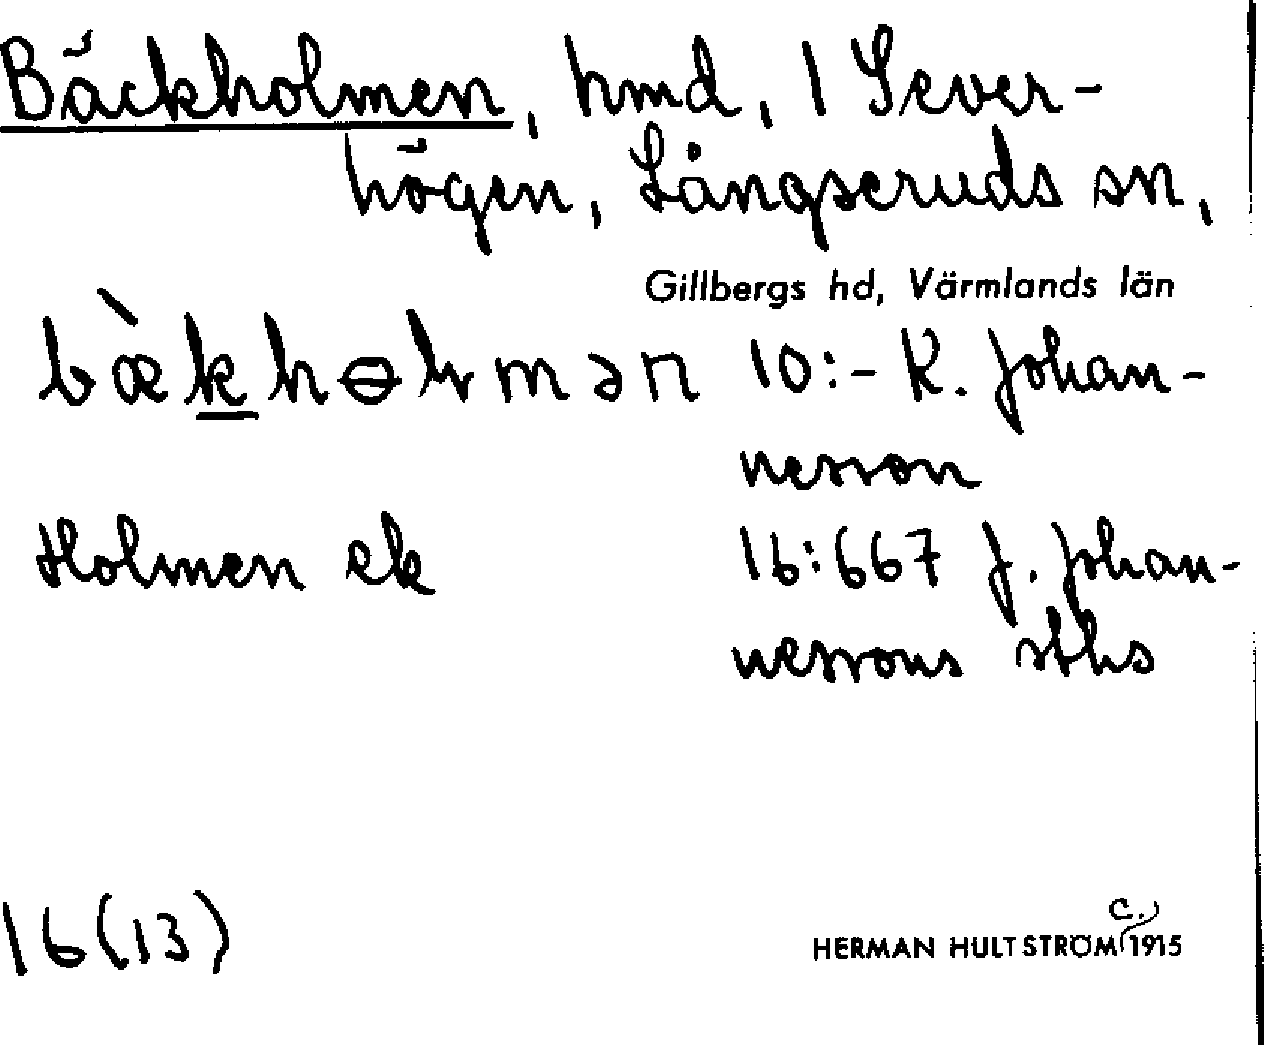 Bäckholmen, hmd, 1 Sever-
högen, Långseruds sn,
Gillbergs hd, Värmlands län
bæ̀khɵlmən 10:- K. Johan-
nesson
Holmen ek 16:667 J. Johan-
nessons sths
16(13)
HERMAN HULTSTRÖM c. 1915